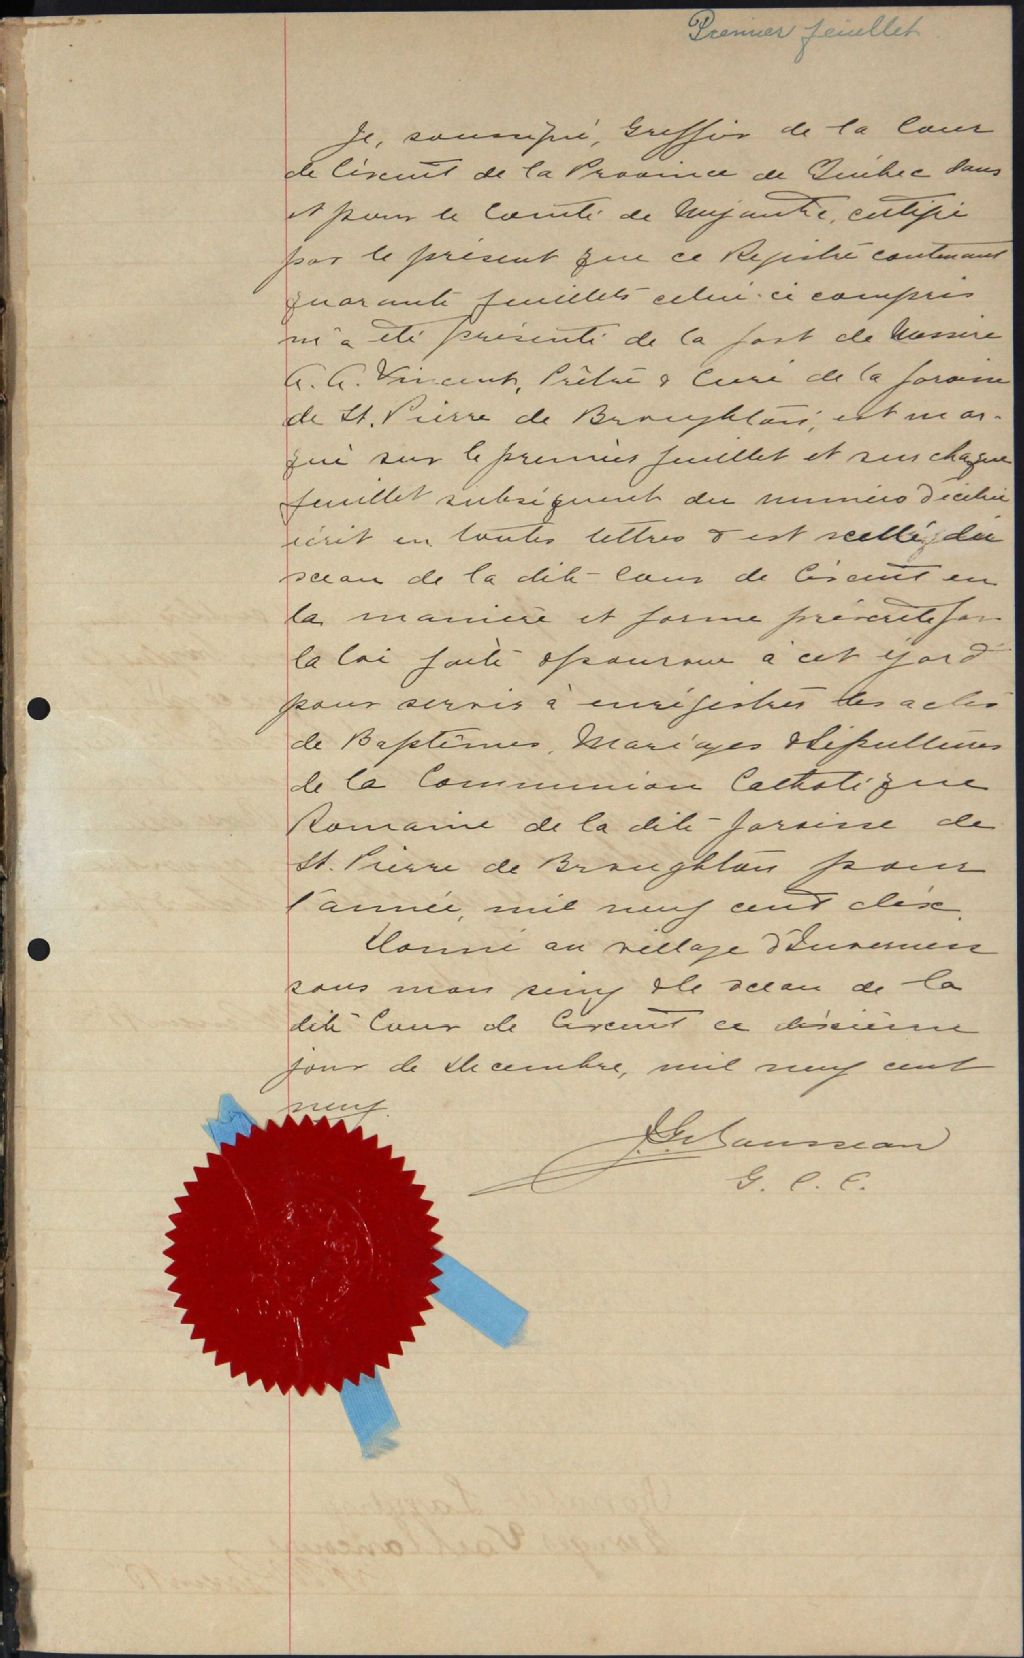 Premier feuillet
Je, soussigné, Greffier de la Cour
de Circuit de la Province de Québec dans
et pour le Comté de Mégantic, certifie
par le présent que ce Registre contenant
quarante feuillets celui-ci compris
m'a été présenté de la part de Messire
A. A. Vincent, Prêtre & Curé de la paroisse
de St. Pierre de Broughton, est mar-
qué sur le premier feuillet et sur chaque
feuillet subséquent du numéro d'icelui
écrit en toutes lettres & est scellé du
sceau de la dite Cour de Circuit en
la manière et forme préscrite par
la loi faite & pourvue à cet égard
pour servir à enrégistrer les actes
de Baptêmes, Mariages & Sépultures
de la Communion Catholique
Romaine de la dite paroisse de
St. Pierre de Broughton pour
l'année, mil neuf cent dix.
Donné au village d'Inverness
sous mon seing & le sceau de la
dite Cour de Circuit ce dixième
jour de Decembre, mil neuf cent
neuf.
G. C. C.